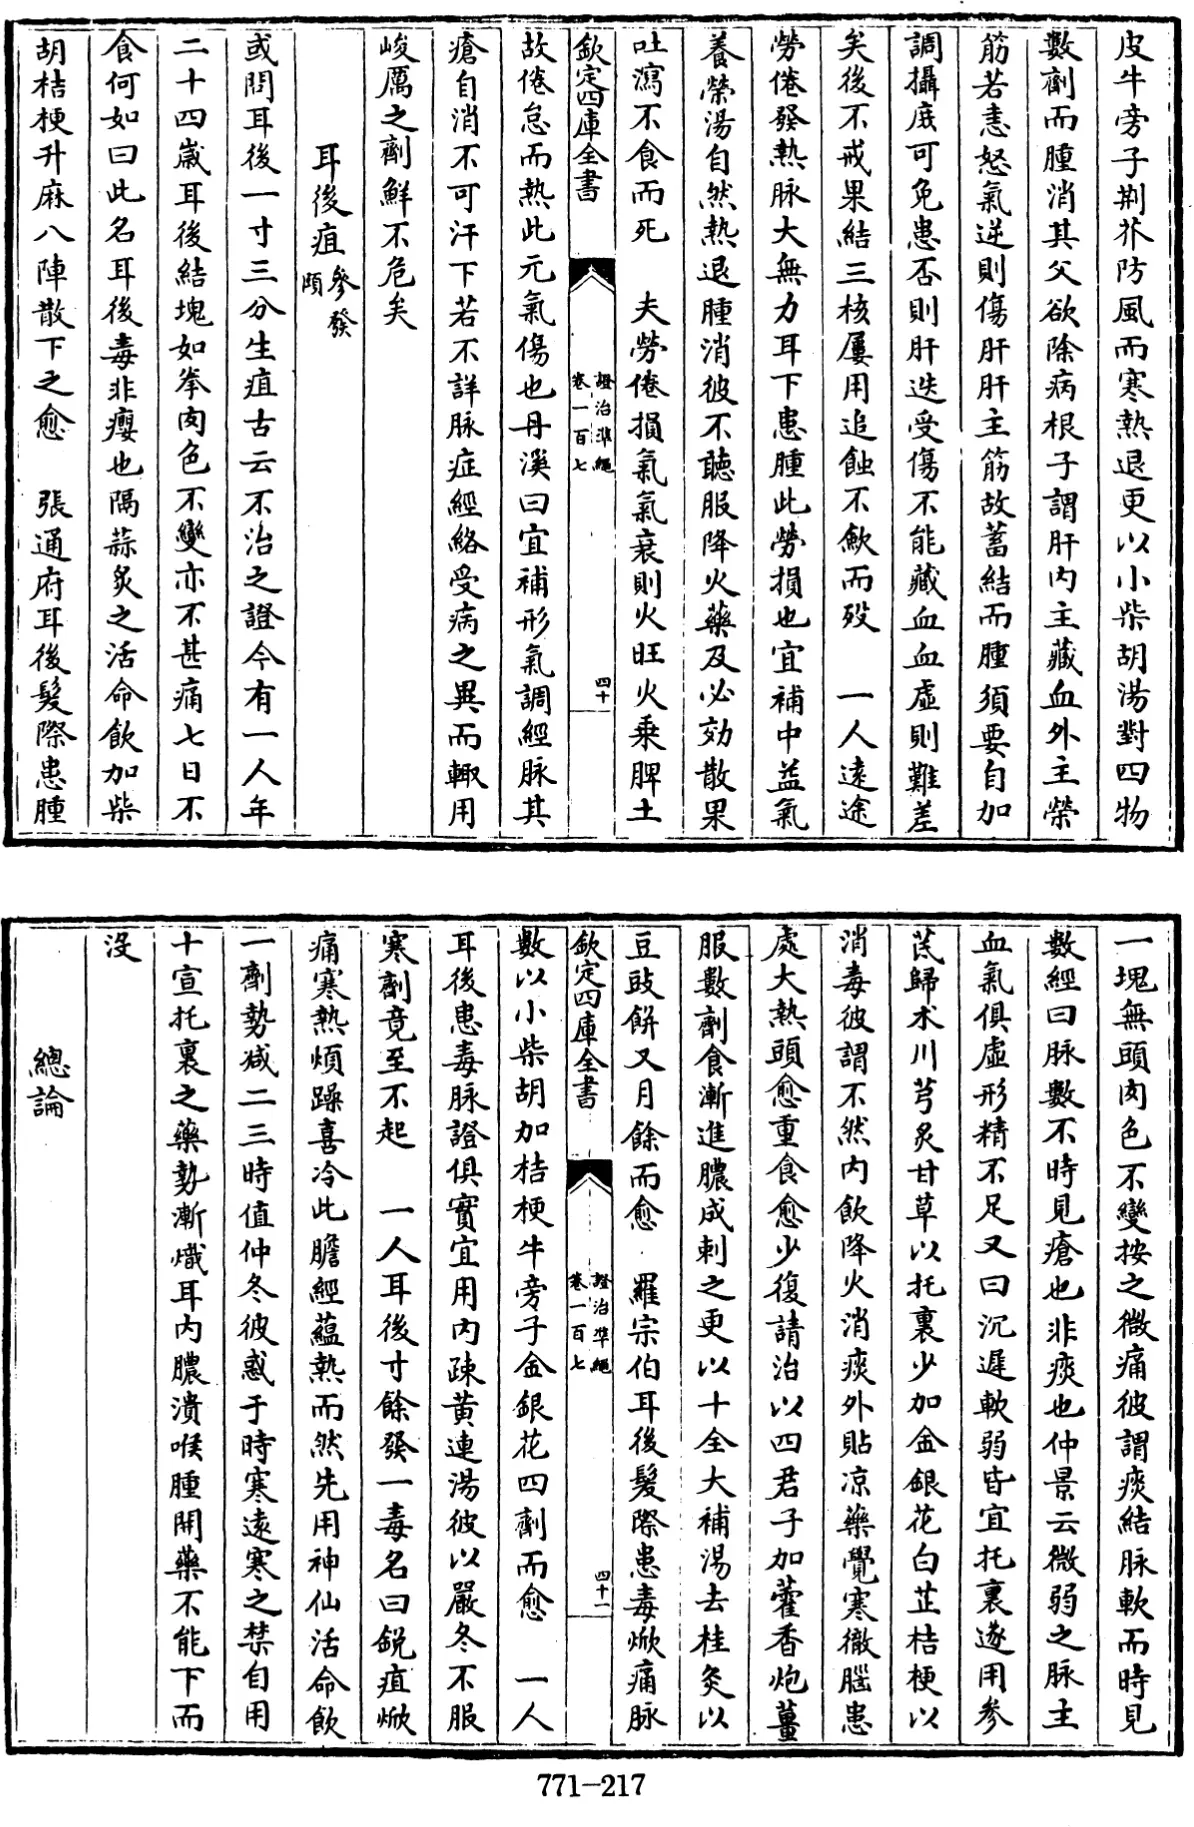 皮牛旁子荆芥防風而寒熱退更以小柴胡湯對四物
數劑而腫消其父欲除病根子謂肝内主藏血外主榮
筋若恚怒氣逆則傷肝肝主筋故蓄結而腫須要自加
調攝庶可免患否則肝迭受傷不能藏血血虛則難差
矣後不戒果結三核屢用追蝕不歛而殁　一人遠途
勞倦發熱脉大無力耳下患腫此勞損也宜補中益氣
養榮湯自然熱退腫消彼不聽服降火藥及必効散果
吐瀉不食而死　夫勞倦損氣氣衰則火旺火乘脾土
欽定四庫全書　證治準繩卷一百七　四十
故倦怠而熱此元氣傷也丹溪曰宜補形氣調經脉其
瘡自消不可汗下若不詳脉症經絡受病之異而輙用
峻厲之劑鮮不危矣
耳後疽參發頤
或問耳後一寸三分生疽古云不治之證今有一人年
二十四嵗耳後結塊如拳肉色不變亦不甚痛七日不
食何如曰此名耳後毒非癭也隔蒜炙之活命飲加柴
胡桔梗升麻八陣散下之愈　張通府耳後髮際患腫
一塊無頭肉色不變按之微痛彼謂痰結脉軟而時見
數經曰脉數不時見瘡也非痰也仲景云微弱之脉主
血氣俱虛形精不足又曰沉遲軟弱皆宜托裏遂用參
芪歸术川芎炙甘草以托裏少加金銀花白芷桔梗以
消毒彼謂不然内飲降火消痰外貼凉藥覺寒徹腦患
處大熱頭愈重食愈少復請治以四君子加藿香炮薑
服數劑食漸進膿成刺之更以十全大補湯去桂灸以
豆豉餅又月餘而愈　羅宗伯耳後髮際患毒焮痛脉
欽定四庫全書　證治準繩卷一百七　四十一
數以小柴胡加桔梗牛旁子金銀花四劑而愈　一人
耳後患毒脉證俱實宜用内疎黄連湯彼以嚴冬不服
寒劑竟至不起　一人耳後寸餘發一毒名曰銳疽焮
痛寒熱煩躁喜冷此膽經藴熱而然先用神仙活命飲
一劑勢减二三時值仲冬彼惑于時寒遠寒之禁自用
十宣托裏之藥勢漸熾耳内膿潰喉腫閉藥不能下而
沒
總論
771—217